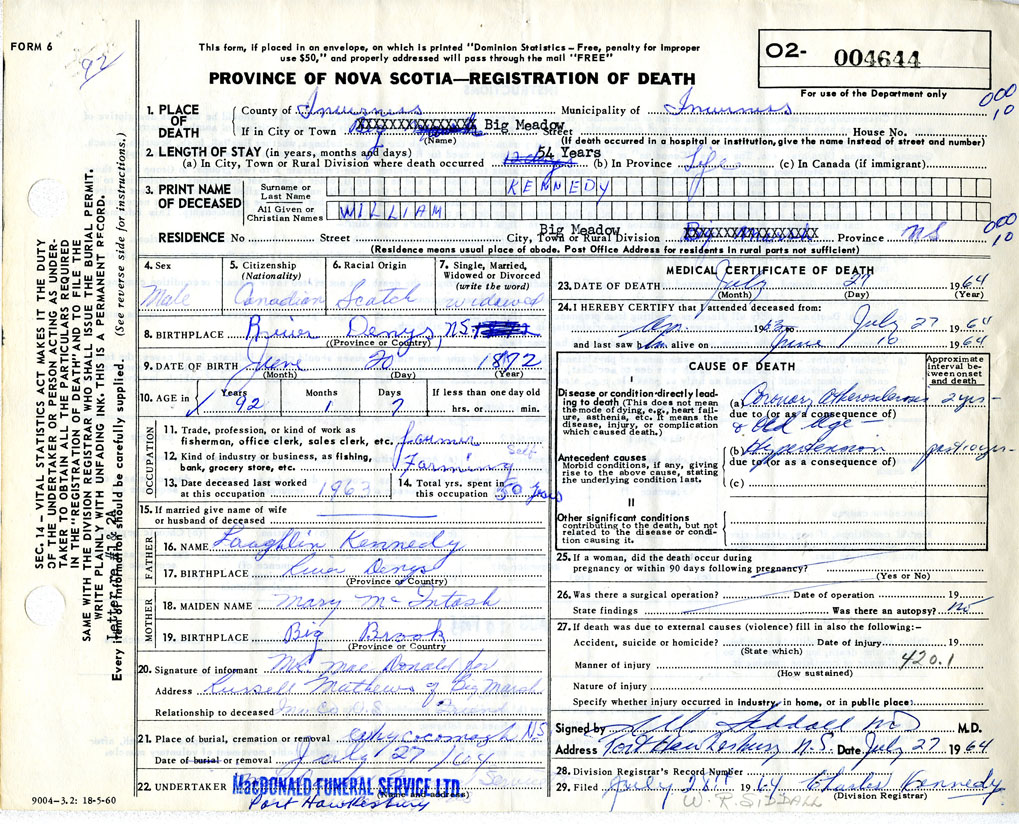 FORM 6
92
This form, if placed in an envelope, on which is printed "Dominion Statistics – Free, penalty for improper
use $50," and properly addressed will pass through the mail "FREE"
PROVINCE OF NOVA SCOTIA—REGISTRATION OF DEATH
O2- 004644
For use of the Department only
000
10
1. PLACE OF DEATH
County of Inverness Municipality of Inverness
If in City or Town XXXXXXXXXXXXXXXX Big Meadow Street House No.
(Name) (If death occurred in a hospital or institution, give the name instead of street and number)
2. LENGTH OF STAY (in years, months and days)
(a) In City, Town or Rural Division where death occurred 54 Years (b) In Province Life (c) In Canada (if immigrant)
3. PRINT NAME OF DECEASED
Surname or Last Name KENNEDY
All Given or Christian Names WILLIAM
Big Meadow
RESIDENCE No Street City, Town or Rural Division XXXXXXXXXXXXXX Province NS
000
10
(Residence means usual place of abode. Post Office Address for residents in rural parts not sufficient)
4. Sex Male
5. Citizenship (Nationality) Canadian
6. Racial Origin Scotch
7. Single, Married, Widowed or Divorced (write the word) widowed
8. BIRTHPLACE River Denys, NS
(Province or Country)
9. DATE OF BIRTH June 20 1872
(Month) (Day) (Year)
10. AGE in Years 92 Months 1 Days 7 If less than one day old hrs. or min.
OCCUPATION
11. Trade, profession, or kind of work as
fisherman, office clerk, sales clerk, etc. farmer
Self
12. Kind of industry or business, as fishing,
bank, grocery store, etc. Farming
13. Date deceased last worked
at this occupation 1963
14. Total yrs. spent in
this occupation 50 years
15. If married give name of wife
or husband of deceased
FATHER
16. NAME Laughlin Kennedy
17. BIRTHPLACE River Denys
(Province or Country)
MOTHER
18. MAIDEN NAME Mary McIntosh
19. BIRTHPLACE Big Brook
(Province or Country
20. Signature of informant Mr. MacDonald for
Address Russell Mathews of Big Marsh
Relationship to deceased Friend
21. Place of burial, cremation or removal NS
Date of burial or removal July 27/64
22. UNDERTAKER MacDONALD FUNERAL SERVICE LTD.
(Name and address)
Port Hawkesbury
9004-3.2: 18-5-60
MEDICAL CERTIFICATE OF DEATH
23. DATE OF DEATH July 27 1964
(Month) (Day) (Year)
24. I HEREBY CERTIFY that I attended deceased from:
19 July 27 1964
and last saw h alive on June 10 1964
CAUSE OF DEATH
Approximate interval between onset and death
I
Disease or condition directly leading to death (This does not mean the mode of dying, e.g., heart failure, asthenia, etc. It means the disease, injury, or complication which caused death.)
(a) Coronary Atherosclerosis 2 yrs-
due to (or as a consequence of)
& Old Age-
Antecedent causes
Morbid conditions, if any, giving rise to the above cause, stating the underlying condition last.
(b) Hypertension
due to (or as a consequence of)
(c)
II
Other significant conditions
contributing to the death, but not related to the disease or condition causing it.
25. If a woman, did the death occur during
pregnancy or within 90 days following pregnancy?
(Yes or No)
26. Was there a surgical operation? Date of operation 19
State findings Was there an autopsy? no
27. If death was due to external causes (violence) fill in also the following:–
Accident, suicide or homicide? Date of injury 19
(State which)
420.1
Manner of injury
(How sustained)
Nature of injury
Specify whether injury occurred in industry, in home, or in public place:
Signed by Siddall MD M.D.
Address Port Hawkesbury N.S. Date July 27 1964
28. Division Registrar's Record Number
29. Filed July 28th 1964 Charles Kennedy
(Division Registrar)
W. R. SIDDALL
SEC. 14 – VITAL STATISTICS ACT MAKES IT THE DUTY
OF THE UNDERTAKER OR PERSON ACTING AS UNDER-
TAKER TO OBTAIN ALL THE PARTICULARS REQUIRED
IN THE "REGISTRATION OF DEATH" AND TO FILE THE
SAME WITH THE DIVISION REGISTRAR WHO SHALL ISSUE THE BURIAL PERMIT.
WRITE PLAINLY WITH UNFADING INK. THIS IS A PERMANENT RECORD.
Letter re #1 & 2A
Every item of information should be carefully supplied. (See reverse side for instructions.)